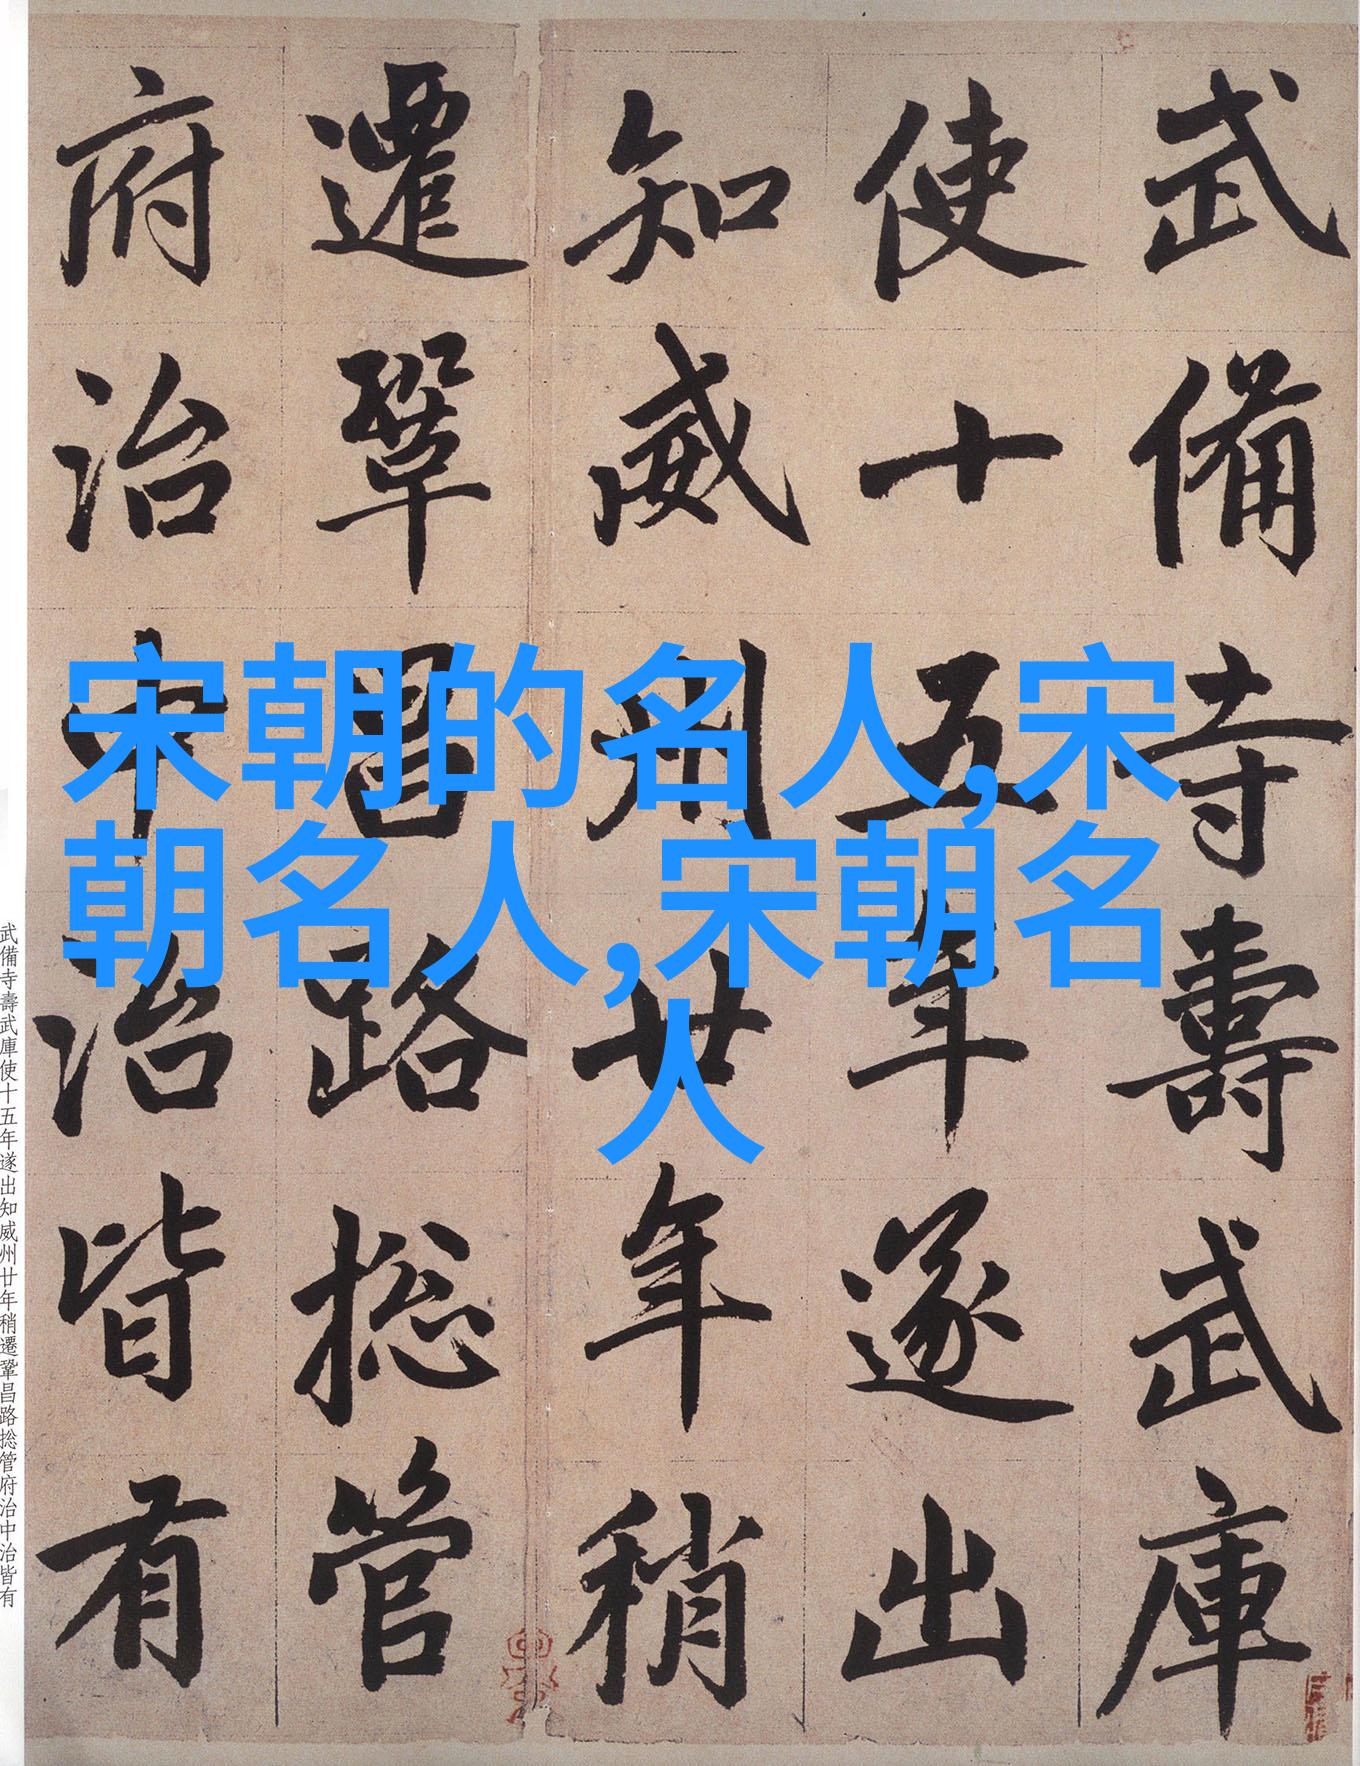 武備寺壽武庫
使十五年遂出
知威州廿年稍
遷鞏昌路捴管
府治中治皆有
宋朝的名人,宋
朝名人,宋朝名
人
武備寺壽武庫使十五年遂出知威州廿年稍遷鞏昌路捴管府治中治皆有